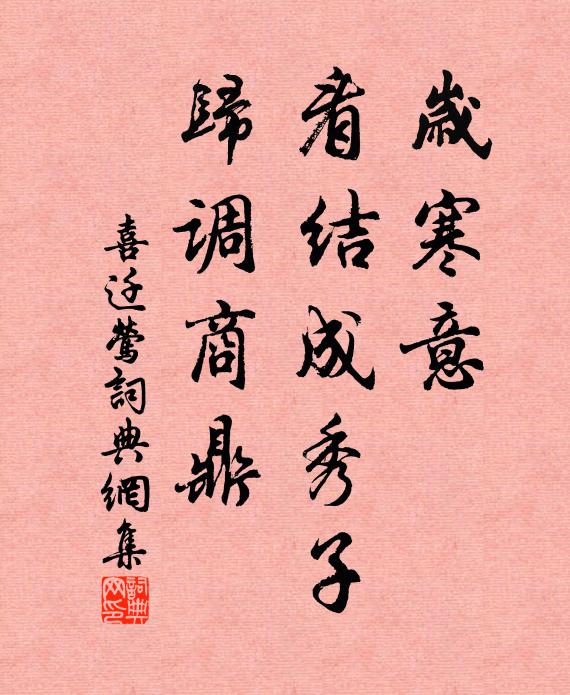 歲寒意
看結成秀子
歸調商鼎
喜迁鶯詞典網集
詞典网印